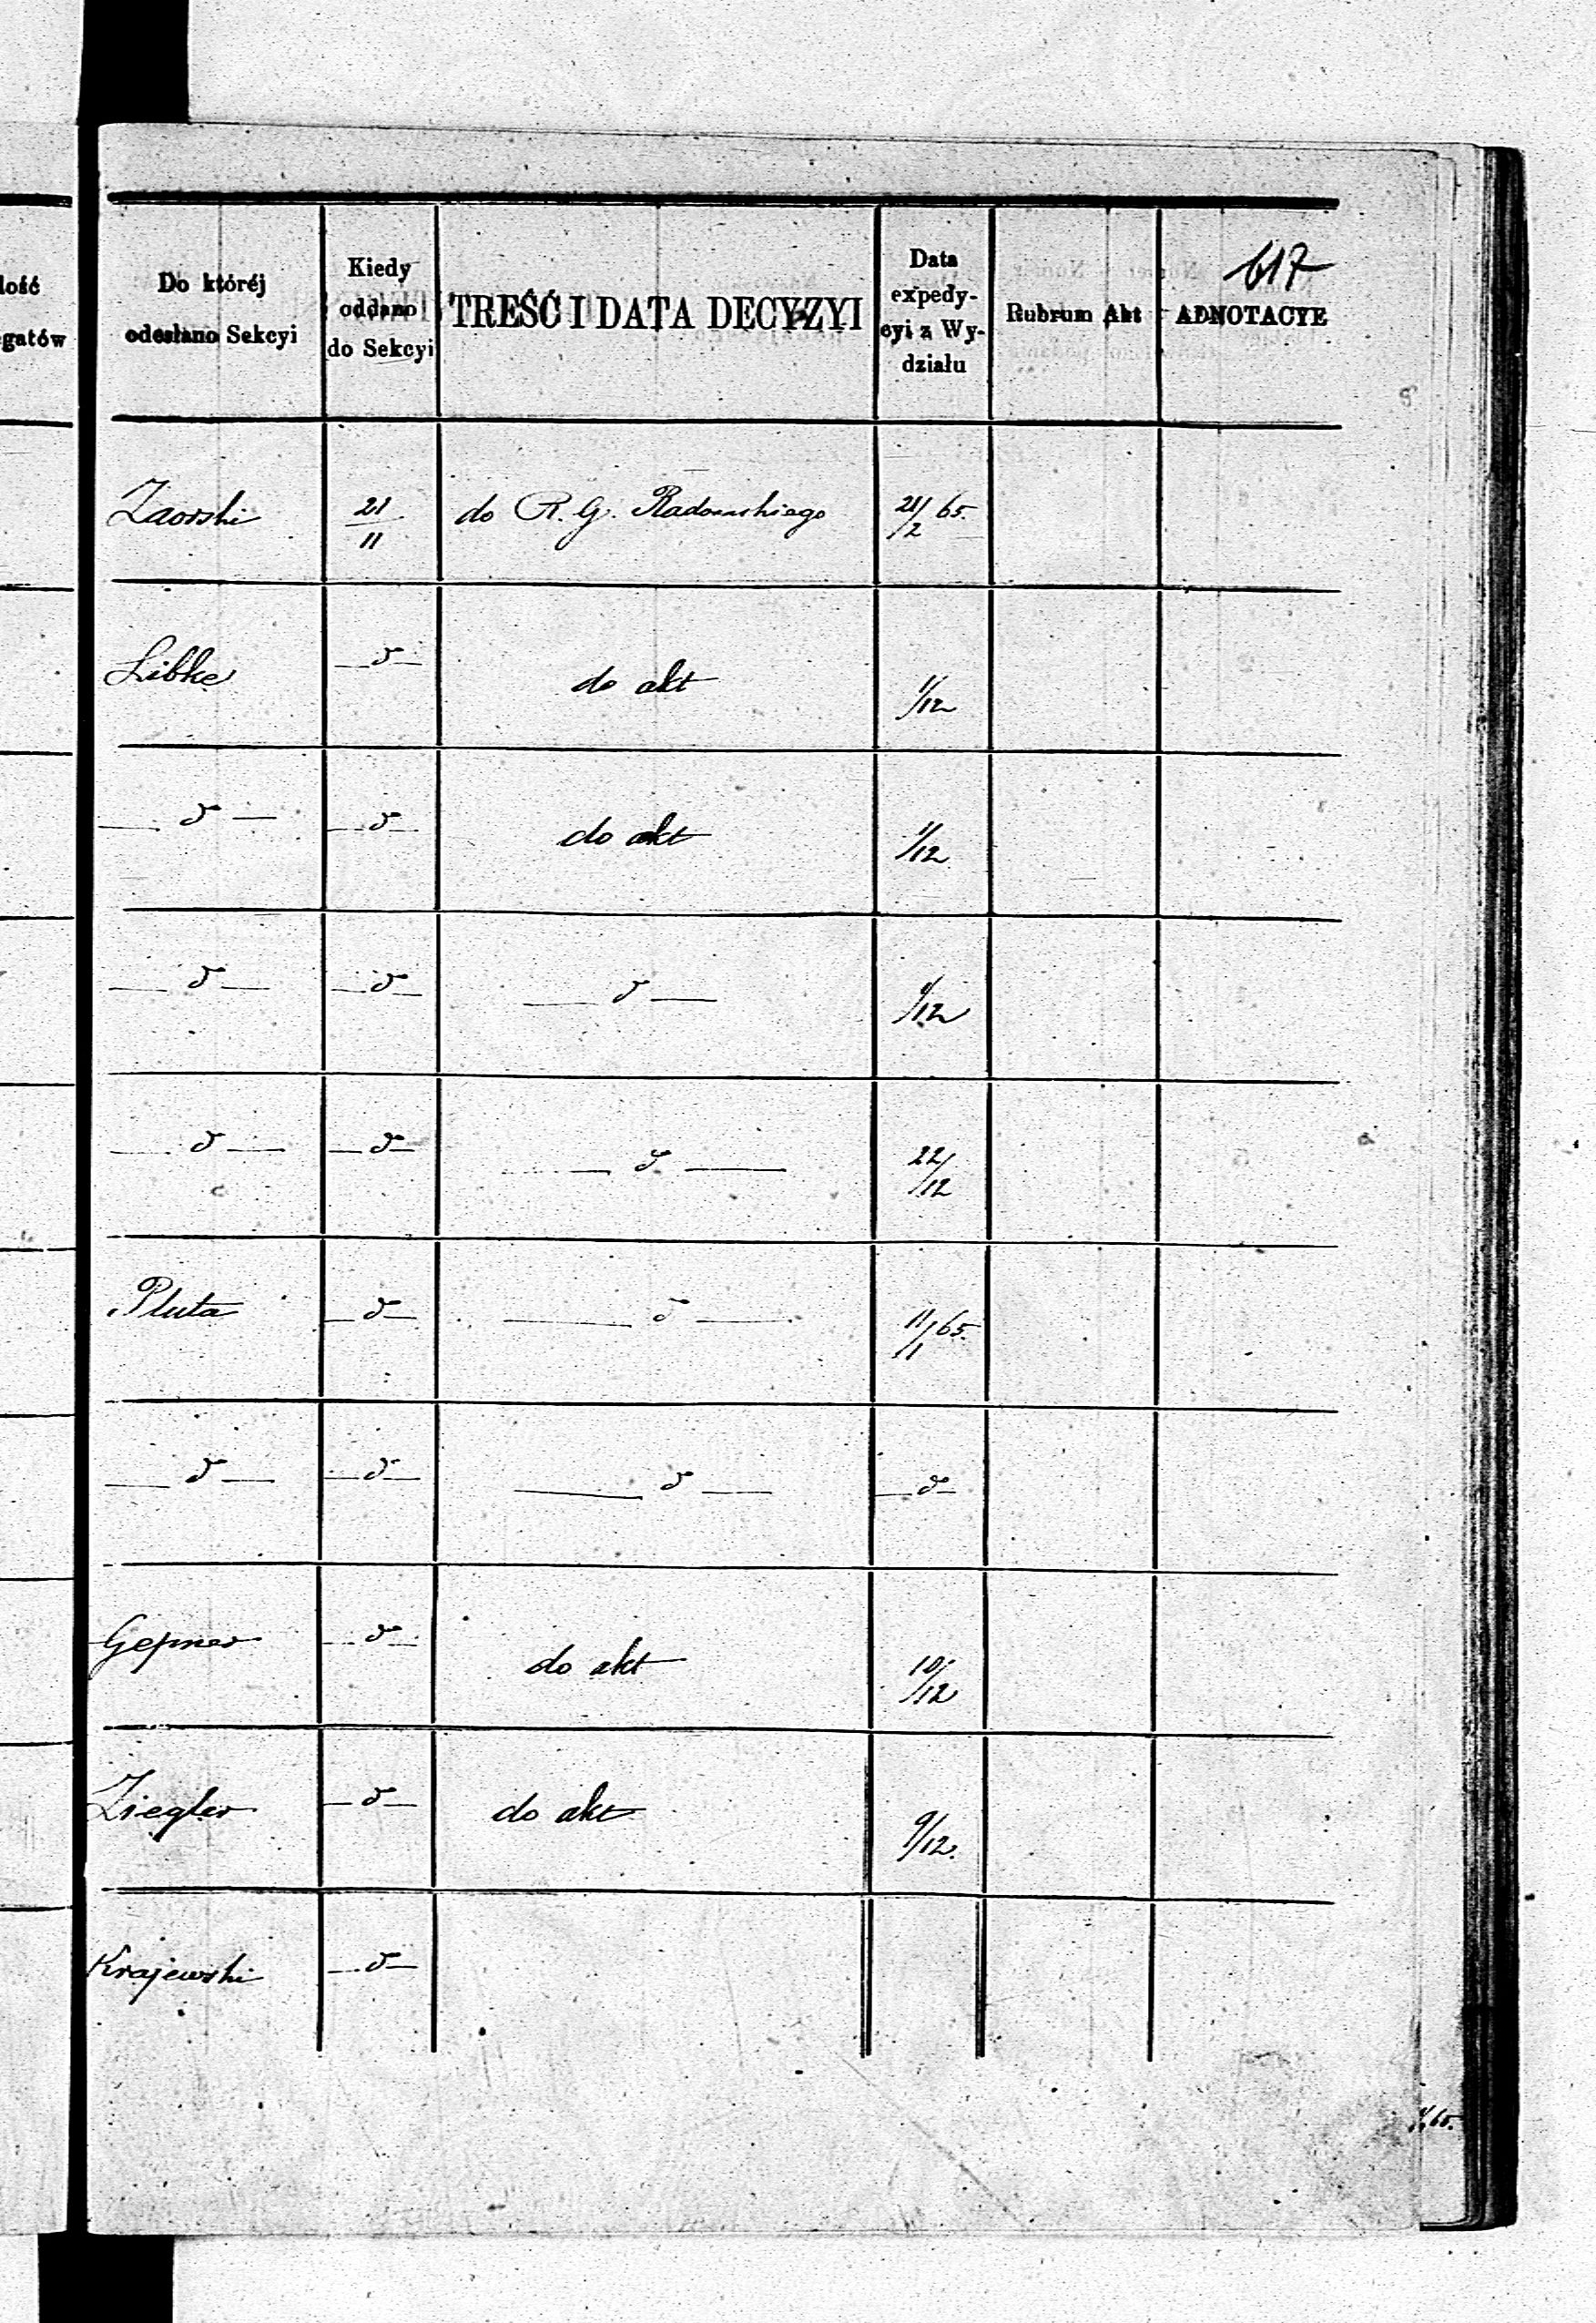 617
lość
gatów
Do któréj
odesłano Sekcyi
Kiedy
oddano
do Sekcyi
TREŚĆ I DATA DECYZYI
Data
expedy-
cyi z Wy-
działu
Rubrum Akt
ADNOTACYE
Zaorski 21/11 do R. G. Radomskiego 21/2 65.
Libke — d — do akt 1/12
— d — — d — do akt 1/12
— d — — d — — d — 1/12
— d — — d — — d — 22/12
Pluta — d — — d — 11/1 65.
— d — — d — — d — — d —
Gepner — d — do akt 10/12
Ziegler — d — do akt 9/12.
Krajewski — d —
65.